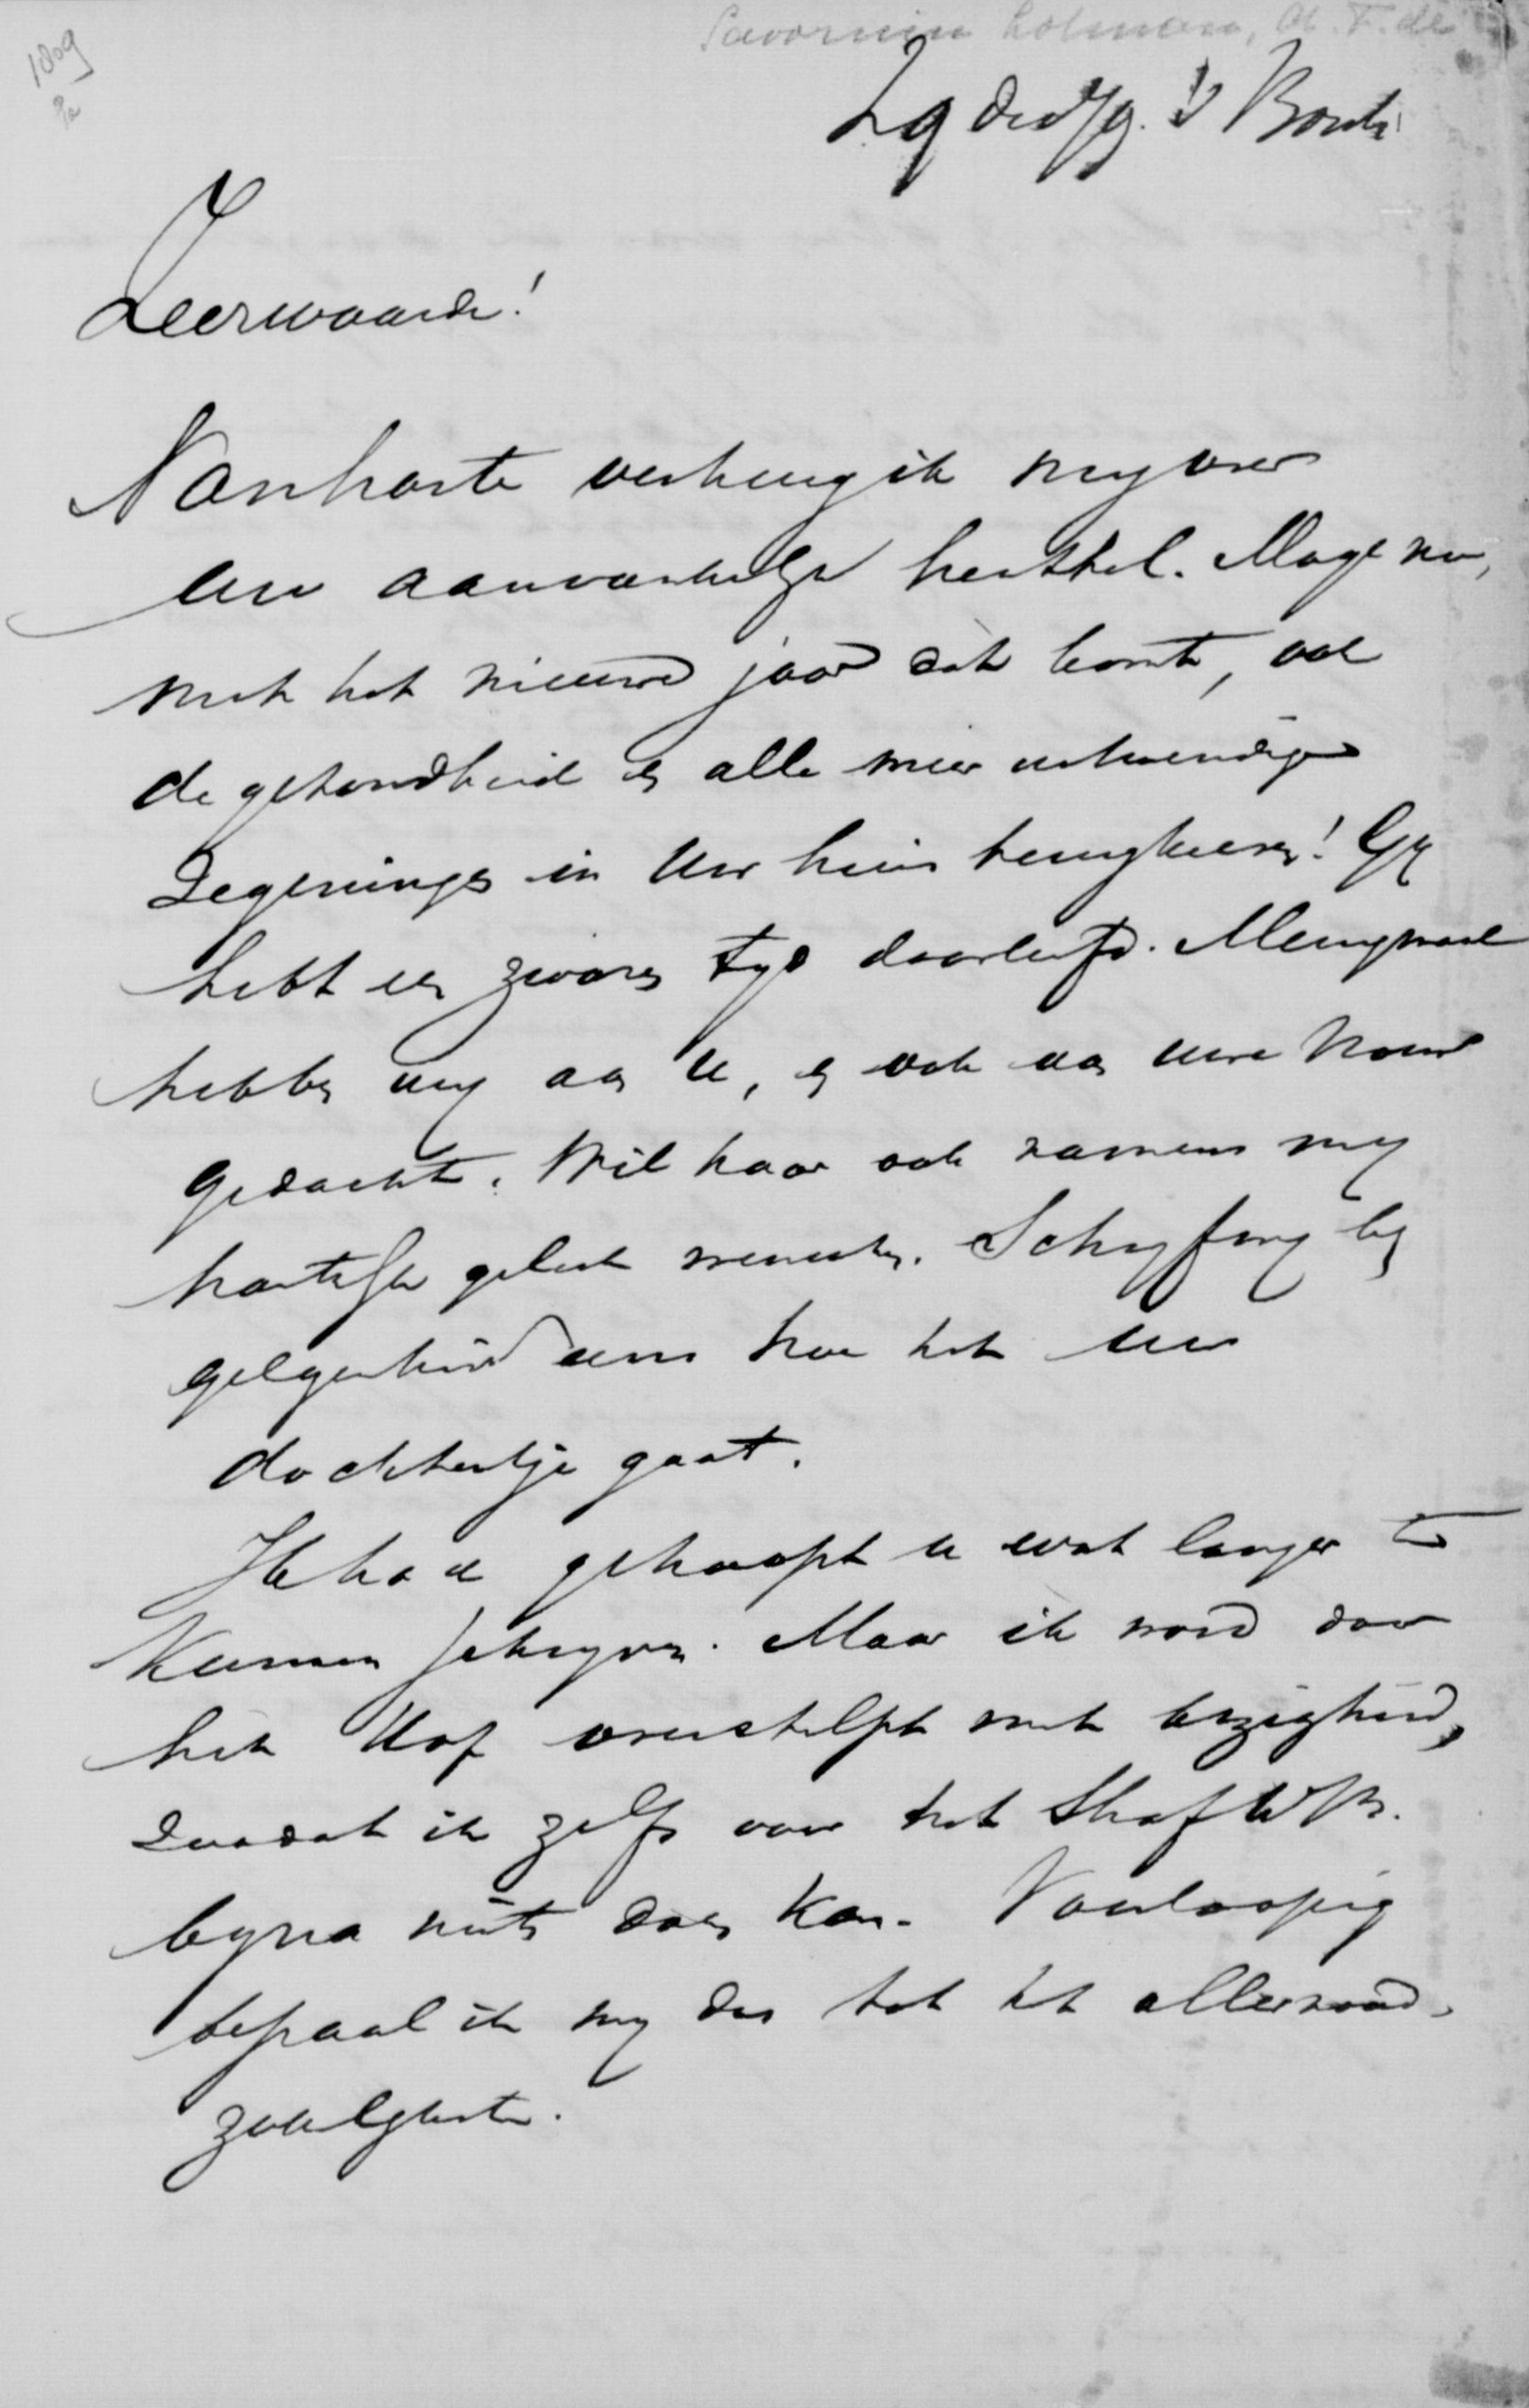 1809
Savornin Lohman, A. F. de
29 Dec/79. 's Bosch
Zeerwaarde!
Van harte verheug ik my over
uw aanvankelyk herstel. Moge nu,
met het nieuwe jaar dat komt, ook
de gezondheid en alle meer uitwendige
zegeningen in Uw huis terugkeeren! Gy
hebt een zwaren tyd doorleefd. Menigmaal
hebben wy aan U, en ook aan uwe vrouw
gedacht. Wil haar ook namens my
hartelyk geluk wenschen. Schryf my by
gelegenheid eens hoe het uw
dochtertje gaat.
Ik had gehoopt u wat langer te
kunnen schryven. Maar ik word door
het Hof overstelpt met bezigheid,
zoodat ik zelfs voor het StrafWb.
byna niets doen kan. Voorloopig
bepaal ik my dus tot het allernood-
zakelykste.